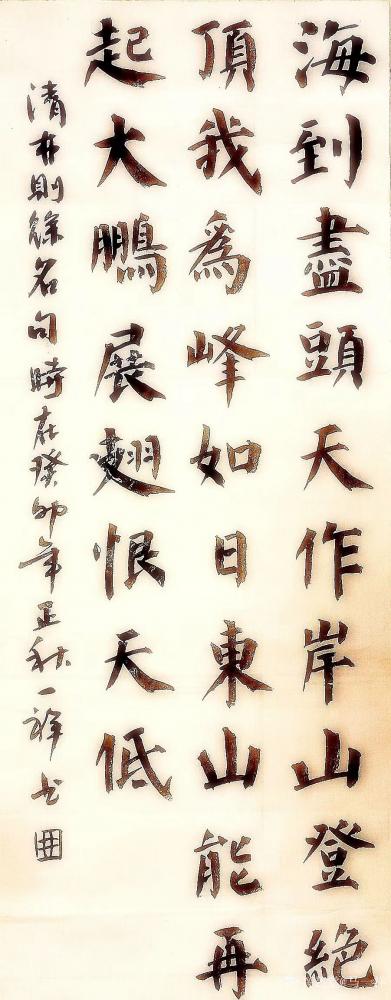 海到盡頭天作岸山登絶
頂我為峰如日東山能再
起大鵬展翅恨天低
清林則餘名句時在癸卯年正秋一祥书